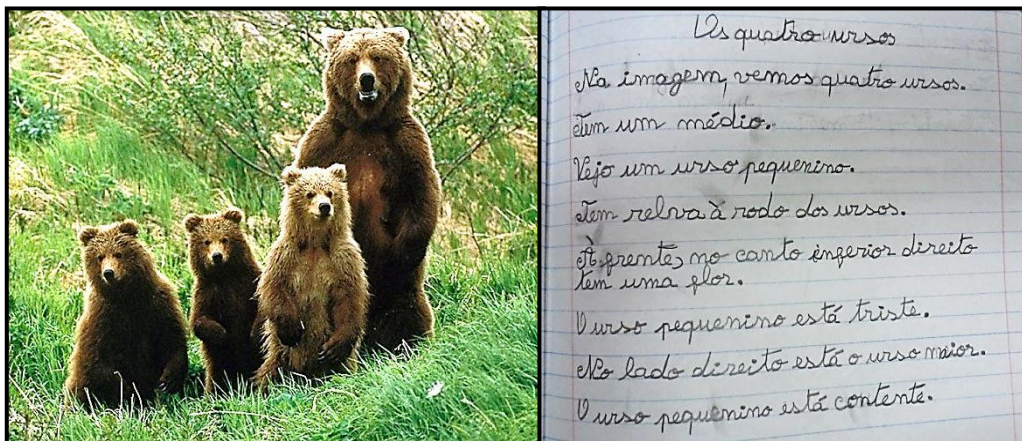 Os quatro ursos
Na imagem, vemos quatro ursos.
Tem um médio.
Vejo um urso pequenino.
Tem relva à rodo dos ursos.
À frente, no canto inferior direito
tem uma flor.
O urso pequenino está triste.
No lado direito está o urso maior.
O urso pequenino está contente.